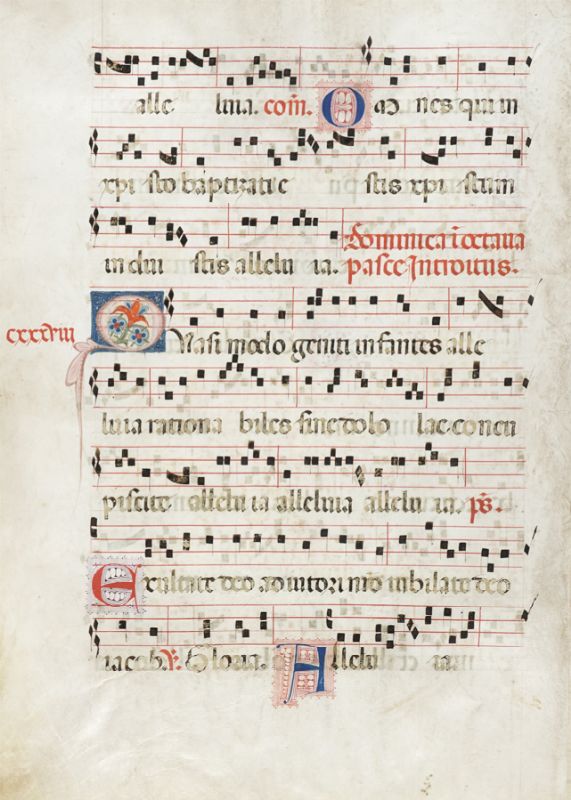 alle luia. com̃. Om nes qui in
xpi sto baptizatie stis xpi stum
in dui stis allelu ia. Dominica ĩ octaua
pasce Introitus.
cxxxviii
Quasi modo geniti infantes alle
luia rationa biles sine dolo lac concu
piscite allelu ia alleluia allelu ia. ps̃.
Exultate deo adiutori nr̃o iubilate deo
iacob. ℣. Gloria. Allelu ia